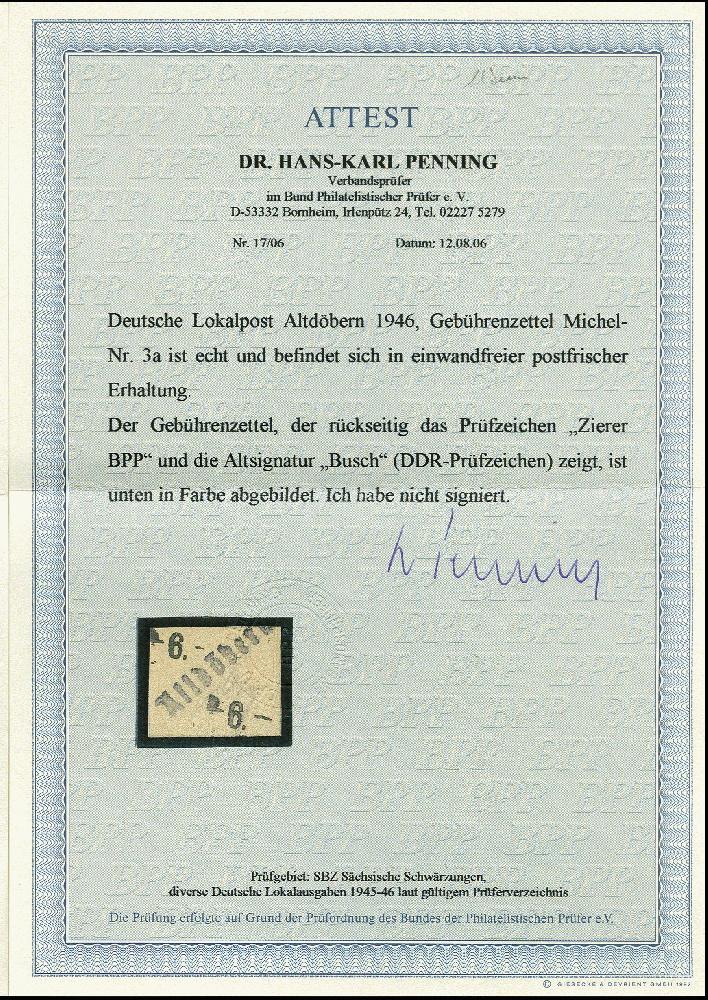 ATTEST
DR. HANS-KARL PENNING
Verbandsprüfer
im Bund Philatelistischer Prüfer e. V.
D-53332 Bornheim, Irlenpütz 24, Tel. 02227 5279
Nr. 17/06 Datum: 12.08.06
Deutsche Lokalpost Altdöbern 1946, Gebührenzettel Michel-
Nr. 3a ist echt und befindet sich in einwandfreier postfrischer
Erhaltung.
Der Gebührenzettel, der rückseitig das Prüfzeichen „Zierer
BPP“ und die Altsignatur „Busch“ (DDR-Prüfzeichen) zeigt, ist
unten in Farbe abgebildet. Ich habe nicht signiert.
6.-
Altdöbern
6.-
Prüfgebiet: SBZ Sächsische Schwärzungen,
diverse Deutsche Lokalausgaben 1945-46 laut gültigem Prüferverzeichnis
Die Prüfung erfolgte auf Grund der Prüfordnung des Bundes der Philatelistischen Prüfer e.V.
© GIESECKE & DEVRIENT GMBH 1992